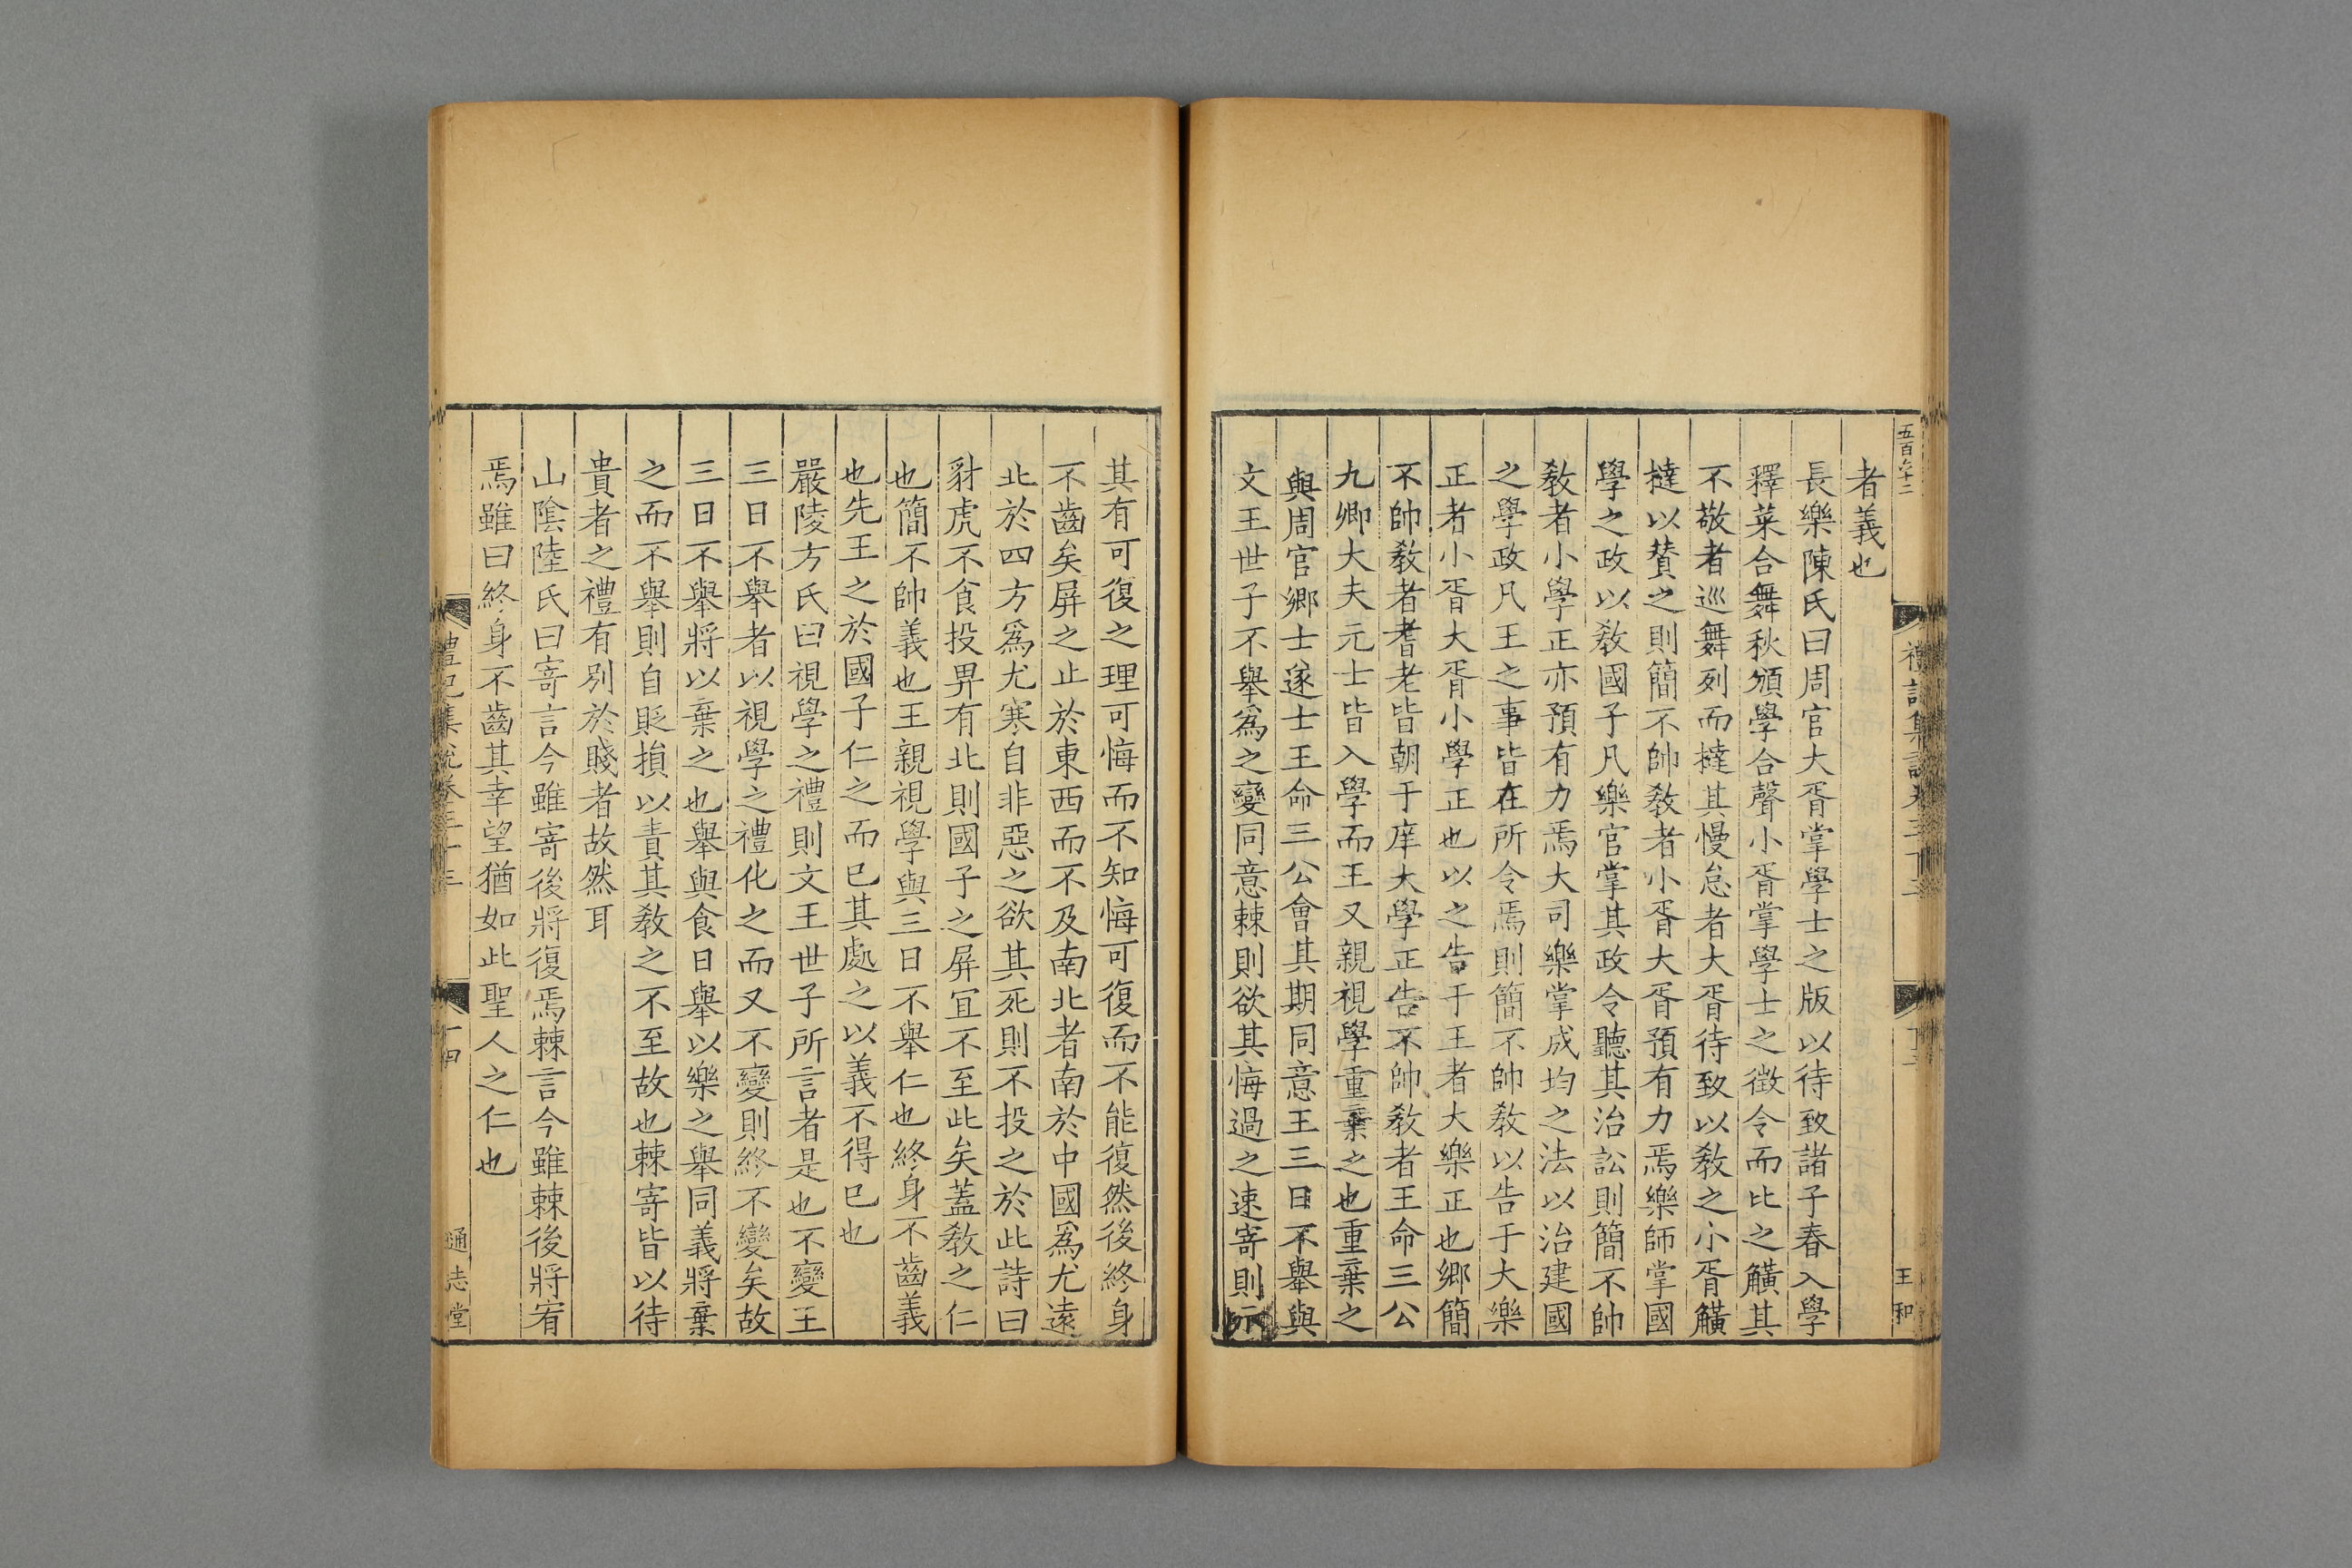 五百六十二
者義也
長樂陳氏曰周官大胥掌學士之版以待致諸子春入學
釋菜合舞秋頒學合聲小胥掌學士之徵令而比之觵其
不敬者巡舞列而撻其慢怠者大胥待致以敎之小胥觵
撻以賛之則簡不帥敎者小胥大胥預有力焉樂師掌國
學之政以敎國子凡樂官掌其政令聽其治訟則簡不帥
敎者小學正亦預有力焉大司樂掌成均之法以治建國
之學政凡王之事皆在所令焉則簡不帥敎以告于大樂
正者小胥大胥小學正也以之告于王者大樂正也鄉簡
不帥敎者耆老皆朝于庠大學正告不帥敎者王命三公
九卿大夫元士皆入學而王又親視學重棄之也重棄之
與周官鄉士遂士王命三公會其期同意王三日不舉與
文王世子不舉爲之變同意棘則欲其悔過之速寄則示
王和
其有可復之理可悔而不知悔可復而不能復然後終身
不齒矣屏之止於東西而不及南北者南於中國爲尤遠
北於四方爲尤寒自非惡之欲其死則不投之於此詩曰
豺虎不食投畀有北則國子之屏宜不至此矣蓋敎之仁
也簡不帥義也王親視學與三日不舉仁也終身不齒義
也先王之於國子仁之而已其處之以義不得已也
嚴陵方氏曰視學之禮則文王世子所言者是也不變王
三日不舉者以視學之禮化之而又不變則終不變矣故
三日不舉將以棄之也舉與食日舉以樂之舉同義將棄
之而不舉則自貶損以責其敎之不至故也棘寄皆以待
貴者之禮有别於賤者故然耳
山陰陸氏曰寄言今雖寄後將復焉棘言今雖棘後將宥
焉雖曰終身不齒其幸望猶如此聖人之仁也
禮記集說卷三十三
十四
通志堂